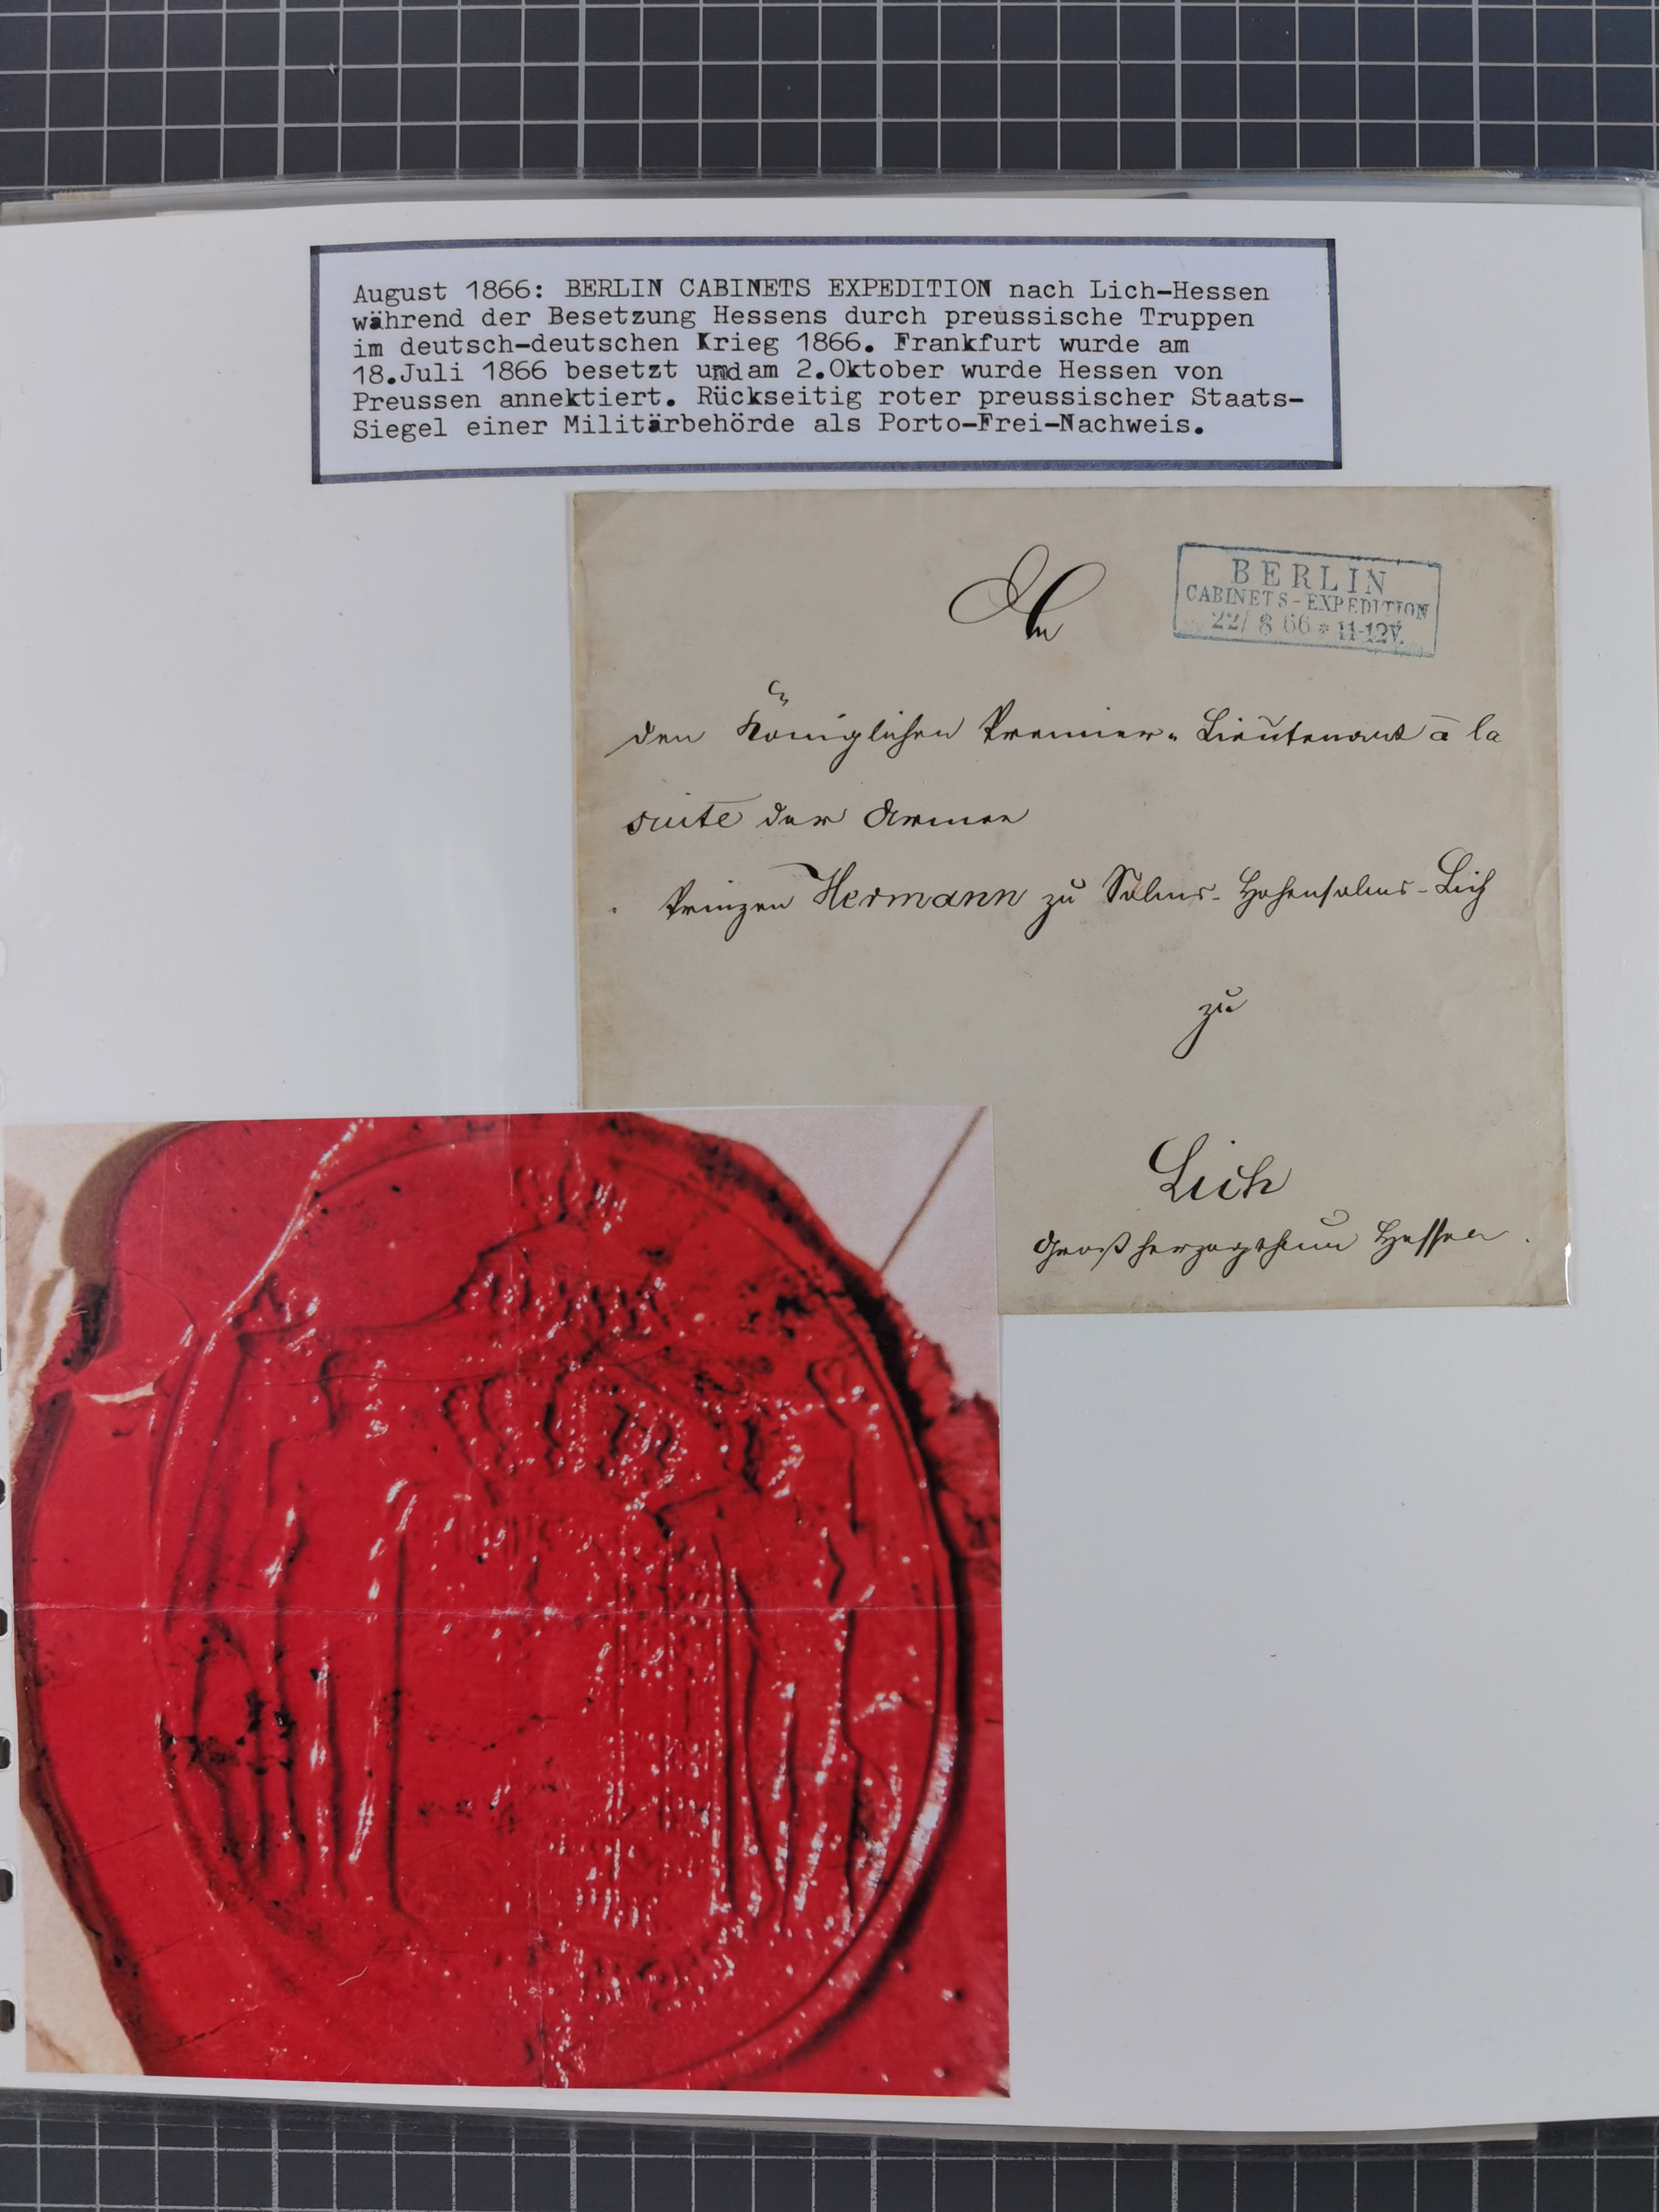 August 1866: BERLIN CABINETS EXPEDITION nach Lich-Hessen
während der Besetzung Hessens durch preussische Truppen
im deutsch-deutschen Krieg 1866. Frankfurt wurde am
18.Juli 1866 besetzt und am 2.Oktober wurde Hessen von
Preussen annektiert. Rückseitig roter preussischer Staats-
Siegel einer Militärbehörde als Porto-Frei-Nachweis.
An
BERLIN
CABINETS-EXPEDITION
22/8 66 * 11-12V.
den Königlichen Premier-Lieutenant à la
suite der Armee
Prinzen Hermann zu Solms-Hohensolms-Lich
zu
Lich
Großherzogthum Hessen.